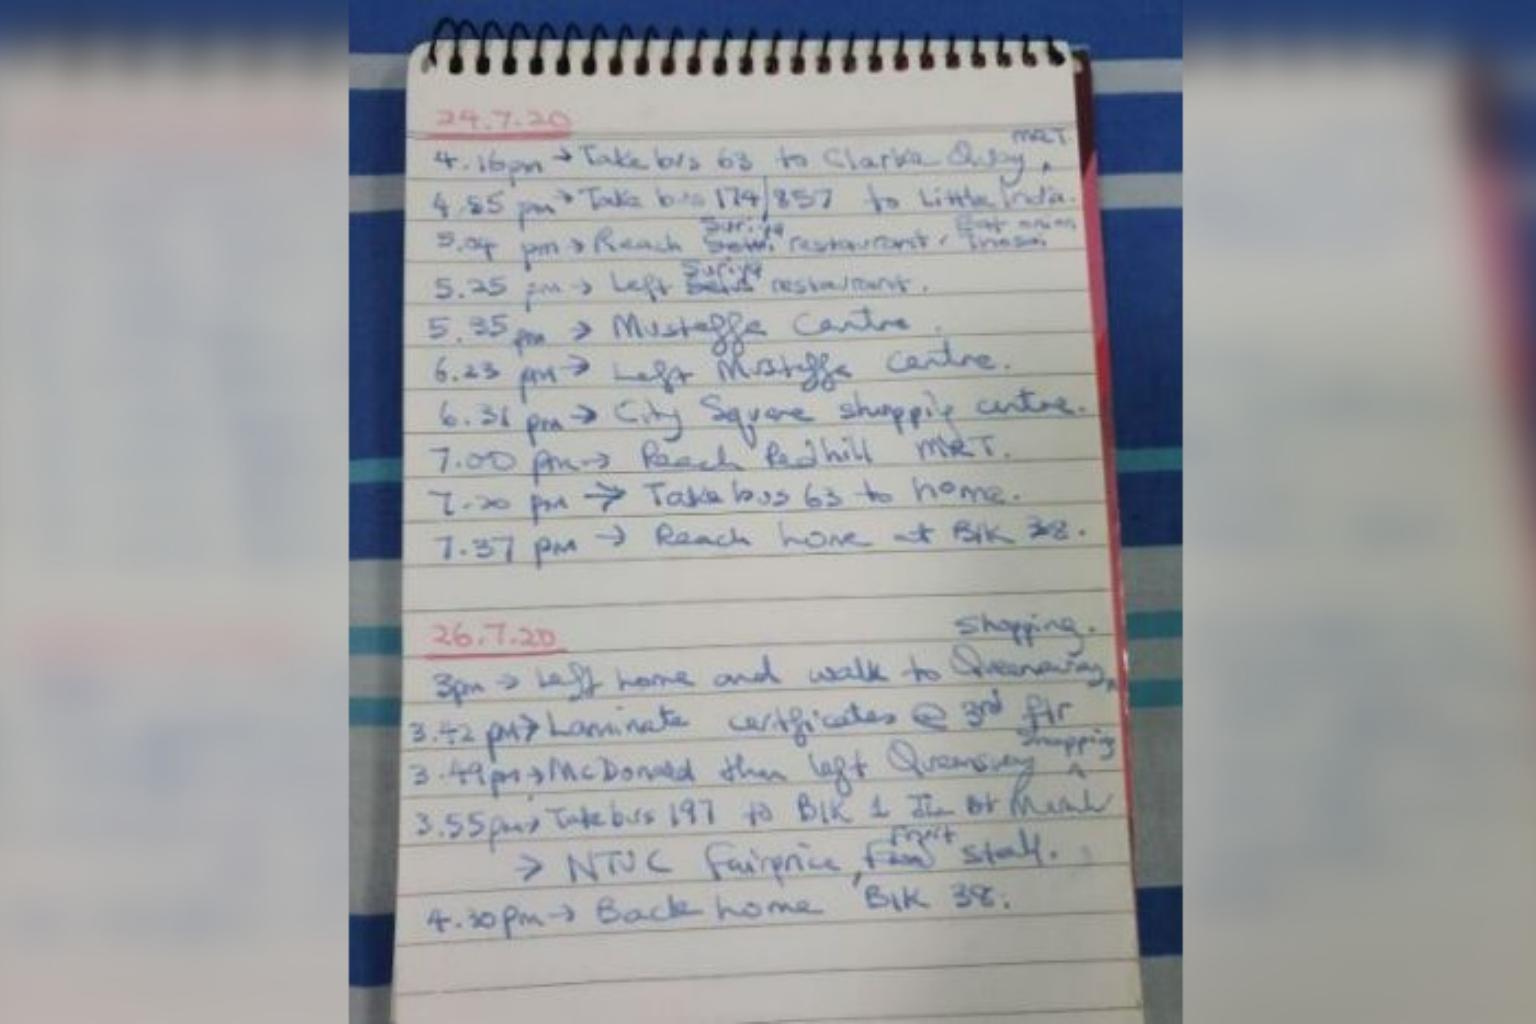 24.7.20
4.16pm → Take bus 63 to Clarke Quay MRT.
pm → Take bus 174/857 to Little India.
5.04 pm → Reach Suriya restaurant. Eat onion Thosai
5.25 pm → Left Suriya restaurant.
5.35 pm → Mustaffa Centre.
6.23 pm → Left Mustaffa Centre.
6.31 pm → City Square shopping centre.
7.00 pm → Reach Redhill MRT.
7.20 pm → Take bus 63 to home.
7.37 pm → Reach home at Blk 38.
26.7.20
3pm → Left home and walk to Queensway shopping.
3.42 pm → Laminate certificates @ 3rd flr
3.49pm → McDonald then left Queensway shopping
3.55pm → Take bus 197 to Blk 1 Jln Bt Merah
→ NTUC Fairprice, Fruit stall.
4.30pm → Back home Blk 38.